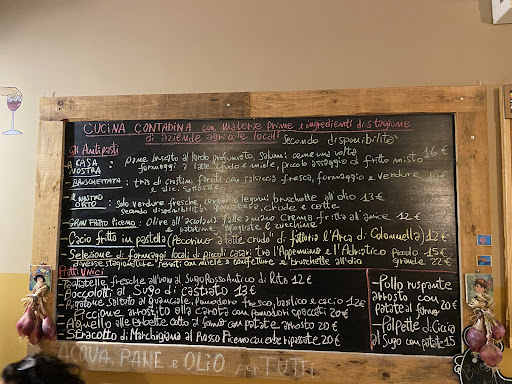 CUCINA CONTADINA con MATERIE PRIME e INGREDIENTI DI STAGIONE
di aziende agricole locali
Secondo disponibilità
Gli Antipasti
A CASA NOSTRA : Pane bruscato al lardo profumato, salumi come una volta 16€
formaggi a latte crudo e miele, piccolo assaggio di fritto misto
BRUSCHETTATA : tris di crostini farciti con salsiccia fresca, formaggio e verdure 10€
e olive
IL NOSTRO ORTO : Solo verdure fresche, cereali e legumi bruschette all'olio 13€
secondo disponibilità crude e cotte
GRAN FRITTO PICENO : Olive all'ascolana Crema fritta 12€
patatine e zucchine
- Cacio fritto in pastella (Pecorino "a latte crudo" di fattoria l'Arca di Colonnella) 12€
Selezione di formaggi locali di piccoli casari tra l'Appennino e l'Adriatico Piccolo 15€
diverse stagionature, serviti con miele e confetture e bruschette all'olio grande 22€
Piatti Unici
- Tagliatelle fresche all'uovo al Sugo Rosso Antico di Rito 12€
- Boccolotti al Sugo di castrato 13€
- salto al guanciale, pomodoro fresco, basilico e cacio 12€
- Piccione arrostito alla carota con pomodori spaccati 20€
- Agnello alle erbette cotto al forno con patate arrosto 20€
- Stracotto di Marchigiana al Rosso Piceno con erbe ripassate 20€
- Pollo ruspante
arrosto con
patate al
forno 20€
- Polpette di Ciccia
al Sugo con patate 15
ACQUA, PANE e OLIO per TUTTI